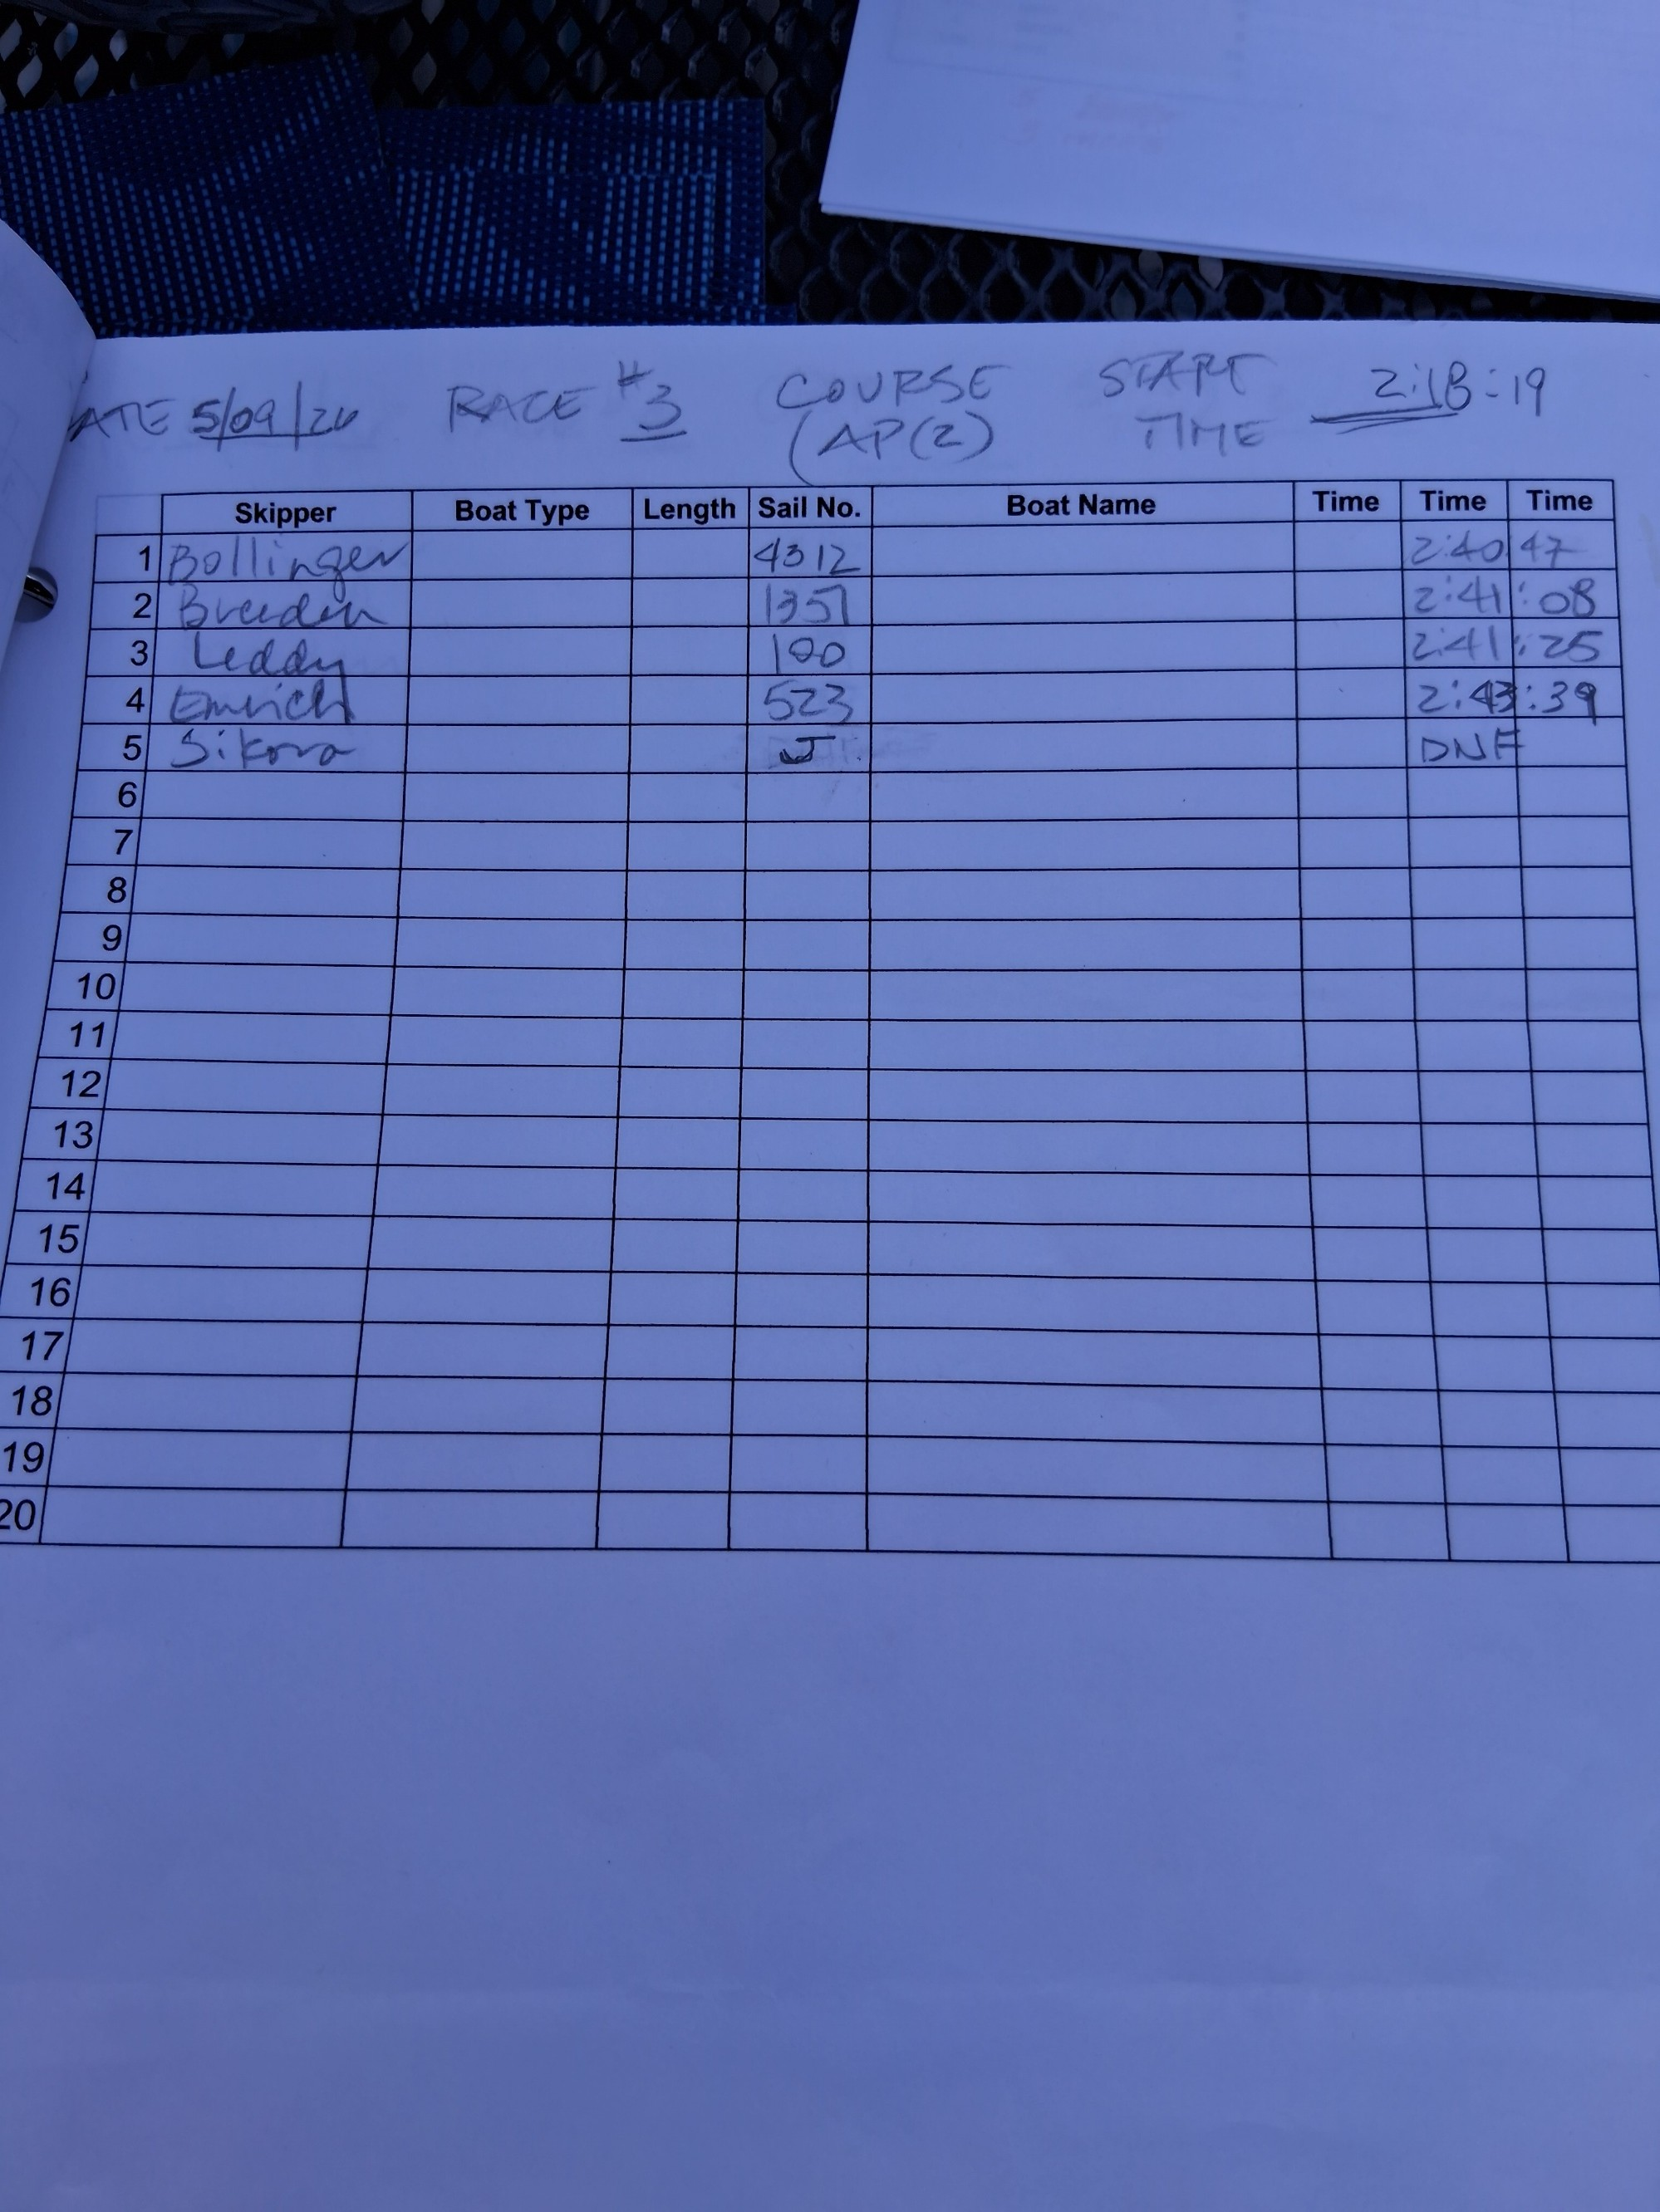 ATE 5/09/26 RACE #3 COURSE (AP(2) START TIME 2:18:19
Skipper Boat Type Length Sail No. Boat Name Time Time Time
1 Bollinger 4312 2:40 47
2 Breeden 1351 2:41:08
3 Leddy 100 2:41:25
4 Emrich 523 2:43:39
5 Sikora J DNF
6
7
8
9
10
11
12
13
14
15
16
17
18
19
20